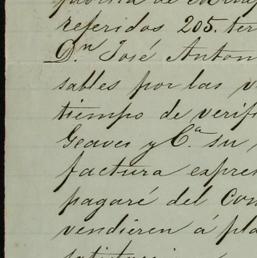 referidos 205. ter
Dn José Anton
sables por las v
tiempo de verifi
Geaves y Ca su
factura expre
pagaré del Con
vendieren á pla